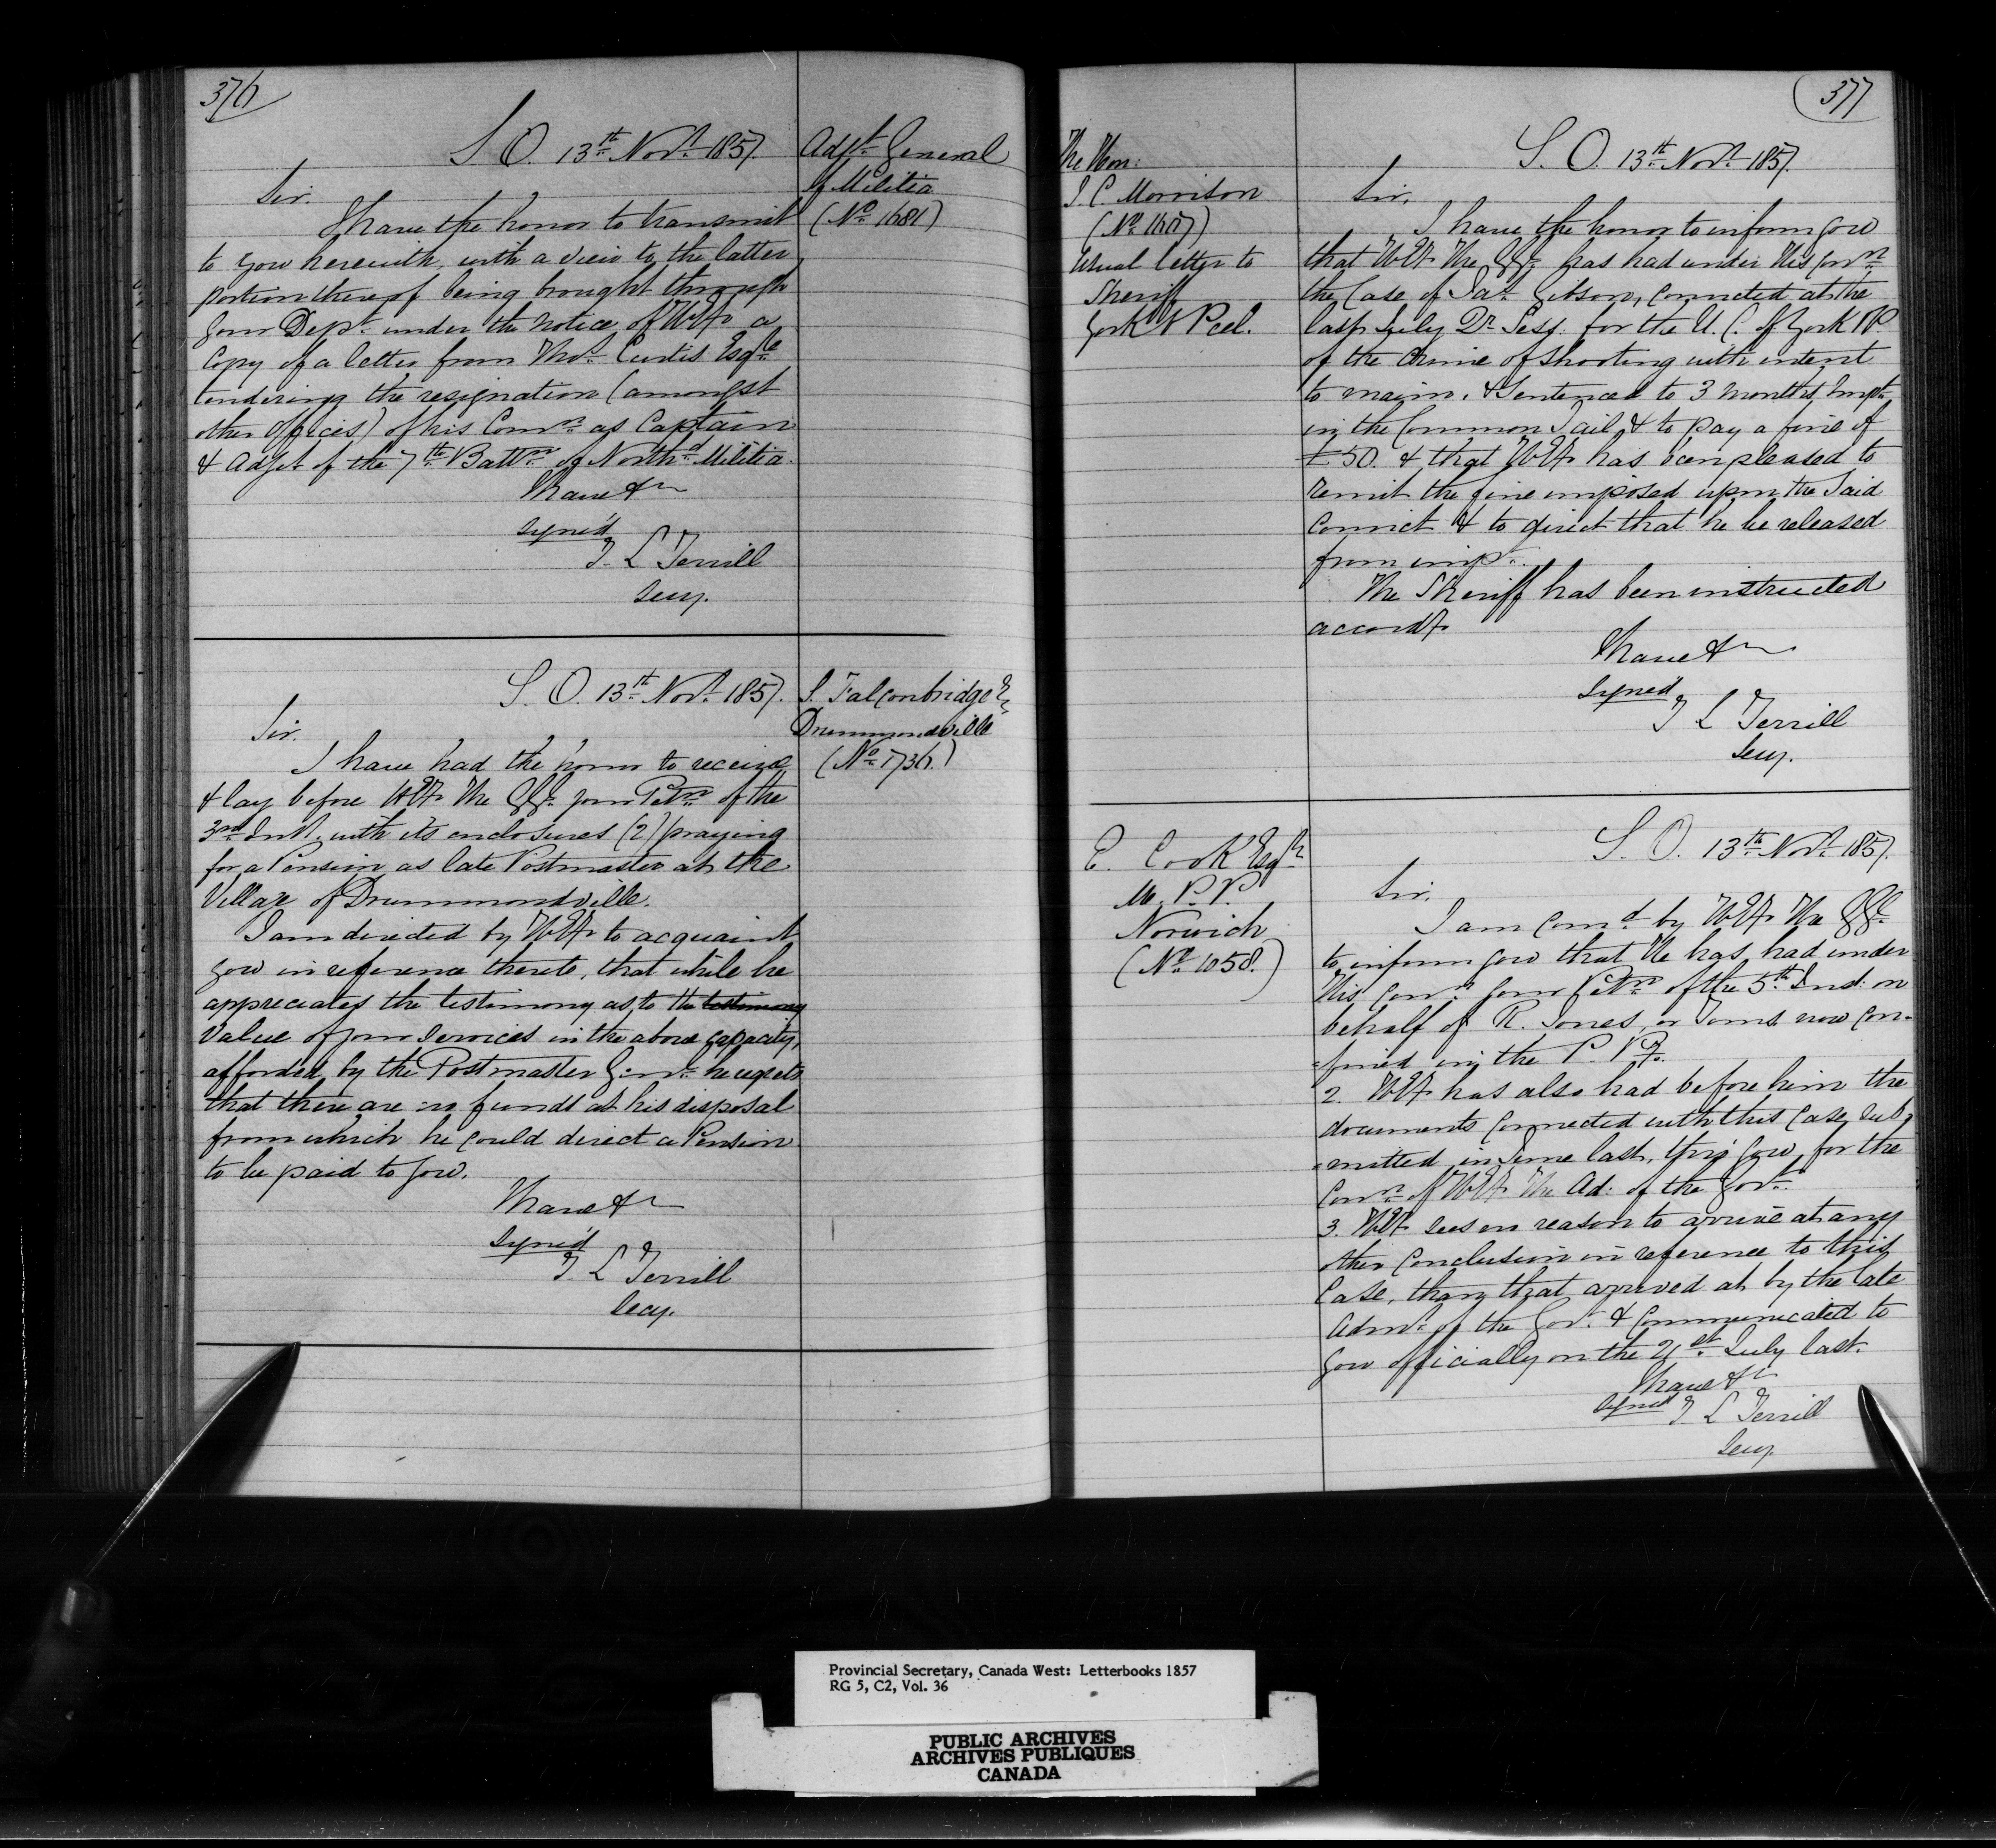 376
S. O. 13th Novr 1857.
Adjt General
of Militia
(No 1681)
Sir.
I have the honor to transmit
to you herewith, with a view to the latter
portion thereof being brought through
your Dept under the notice of HEx a
copy of a letter from Thos Curtis Esqre
tendering the resignation (amongst
other offices) of his Comn as Captain
& Adjt of the 7th Battn of Northd Militia.
I have &c
signed
T. L Terrill
Secy.
S. O. 13th Novr 1857.
S. Falconbridge Esq
Drummondville
(No 1736.)
Sir.
I have had the honor to receive
& lay before HEx The GG. your Petn of the
3rd Inst. with its enclosures (2) praying
for a Pension as late Postmaster at the
Village of Drummondville.
I am directed by HEx to acquaint
you in reference thereto, that while he
appreciates the testimony as to the testimony
value of your services in the above capacity,
afforded by the Postmaster Genl he regrets
that there are no funds at his disposal
from which he could direct a Pension
to be paid to you.
I have &c
signed
T. L Terrill
Secy.
377
The Hon:
J. C. Morrison
Usual letter to
Sheriff
York & Peel.
S. O. 13th Novr 1857.
Sir,
I have the honor to inform you
that HEx The GG. has had under His Conn
the Case of Jas Gibson, convicted at the
last July Qr Sess. for the U. C. of York &P.
of the crime of shooting with intent
to maim. & sentenced to 3 months impt
in the Common Jail & to pay a fine of
£50. & that HEx has been pleased to
remit the fine imposed upon the said
Convict & to direct that he be released
from impt.
The Sheriff has been instructed
accordy
I have &c
signed
T L Terrill
Secy.
E. Cook Esqre
M. P. P.
Norwich
(No 1058.)
S. O. 13th Novr 1857.
Sir.
I am comd by HEx The GG.
to inform you that He has had under
His Conn your Petn of the 5th Inst: on
behalf of R. Jones, or Toms now con-
-fined in the P. Py.
2. HEx has also had before him the
documents connected with this case sub-
-mitted in June last, thro' you, for the
Conn of HEx The Ad: of the Govt.
3. HEx sees no reason to arrive at any
other conclusion in reference to this
Case, than that arrived at by the late
Admr of the Govt & communicated to
you officially on the 21st July last.
I have &c
signed T L Terrill
Secy
Provincial Secretary, Canada West: Letterbooks 1857
RG 5, C2, Vol. 36
PUBLIC ARCHIVES
ARCHIVES PUBLIQUES
CANADA